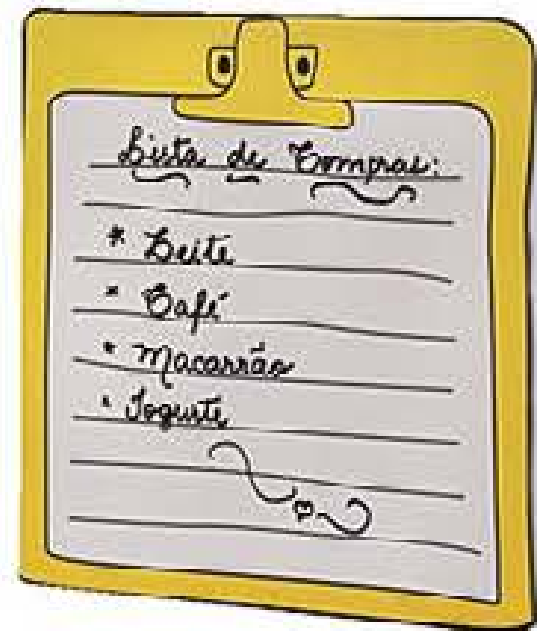 Lista de Compras:
* Leite
* Café
* Macarrão
* Iogurte